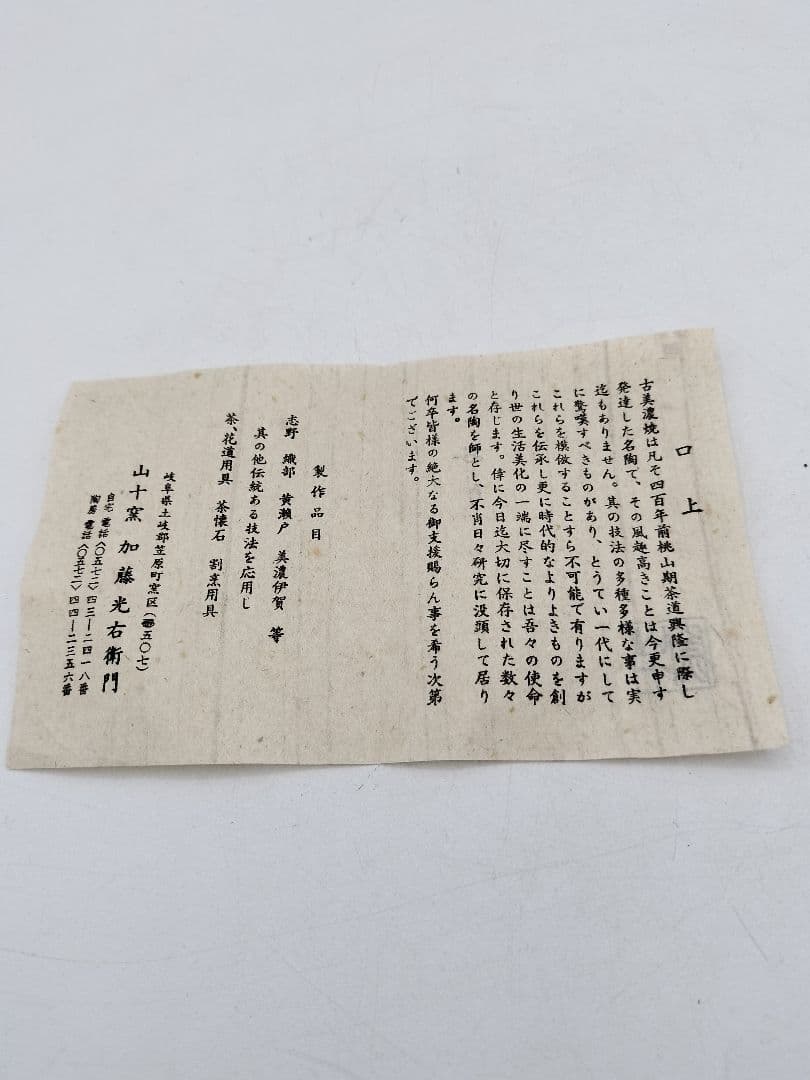 口上
古美濃焼は凡そ四百年前桃山期茶道興隆に際し
発達した名陶で、その風趣高きことは今更申す
迄もありません。其の技法の多種多様な事は実
に驚嘆すべきものがあり、とうてい一代にして
これらを模倣することすら不可能で有りますが
これらを伝承し更に時代的なよりよきものを創
り世の生活美化の一端に尽すことは吾々の使命
と存じます。倖に今日迄大切に保存された数々
の名陶を師とし、不肖日々研究に没頭して居り
ます。
何卒皆様の絶大なる御支援賜らん事を希う次第
でございます。
製作品目
志野 織部 黄瀬戸 美濃伊賀 等
其の他伝統ある技法を応用し
茶、花道用具 茶懐石 割烹用具
岐阜県土岐郡笠原町窯区(〒五〇七)
山十窯 加藤光右衛門
自宅 電話〈〇五七二〉四三―二四一八番
陶房 電話〈〇五七二〉四四―二三五六番